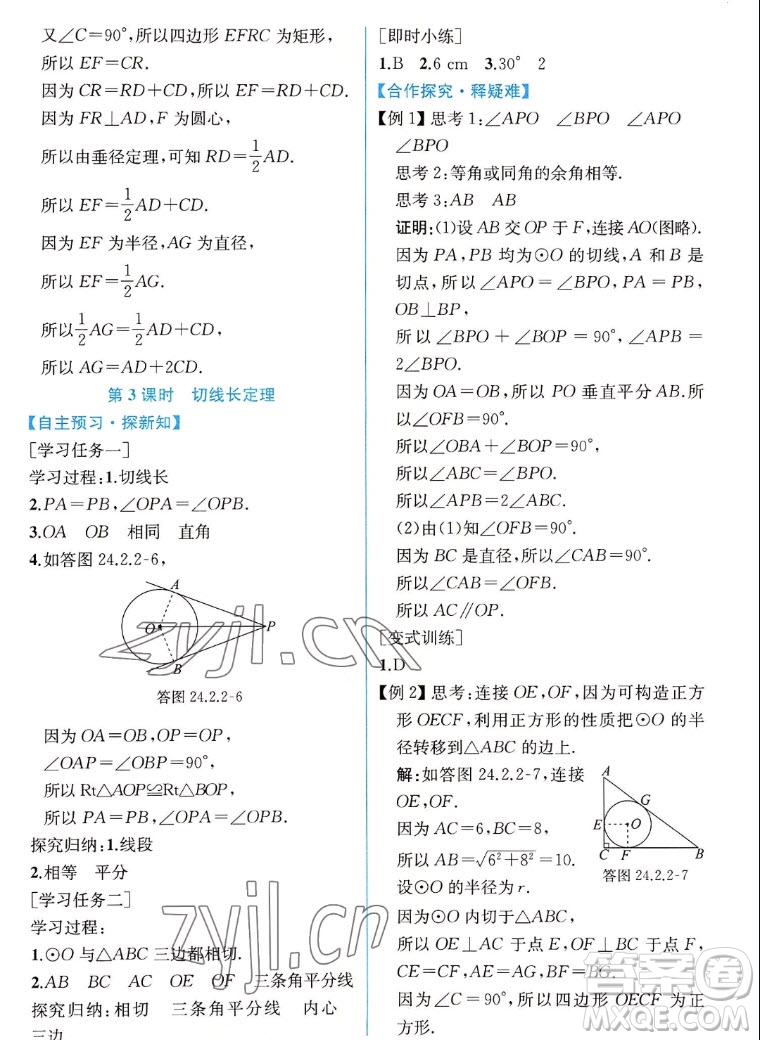 又∠C=90°,所以四边形 EFRC 为矩形,
所以 EF=CR.
因为 CR=RD+CD,
所以 EF=RD+CD.
因为 FR⊥AD,F 为圆心,
所以由垂径定理,可知 RD=1/2AD.
所以 EF=1/2AD+CD.
因为 EF 为半径,AG 为直径,
所以 EF=1/2AG.
所以1/2AG=1/2AD+CD,
所以 AG=AD+2CD.
第 3 课时 切线长定理
【自主预习·探新知】
[学习任务一]
学习过程:1.切线长
2.PA=PB,∠OPA=∠OPB.
3.OA OB 相同 直角
4.如答图 24.2.2-6,
A
O
P
B
答图 24.2.2-6
因为 OA=OB,OP=OP,
∠OAP=∠OBP=90°,
所以 Rt△AOP≌Rt△BOP,
所以 PA=PB,∠OPA=∠OPB.
探究归纳:1.线段
2.相等 平分
[学习任务二]
学习过程:
1.⊙O 与△ABC 三边都相切.
2.AB BC AC OE OF 三条角平分线
探究归纳:相切 三条角平分线 内心
三边
[即时小练]
1.B 2.6 cm 3.30° 2
【合作探究·释疑难】
【例 1】思考 1:∠APO ∠BPO ∠APO
∠BPO
思考 2:等角或同角的余角相等.
思考 3:AB AB
证明:(1)设 AB 交 OP 于 F,连接 AO(图略).
因为 PA,PB 均为⊙O 的切线,A 和 B 是
切点,所以∠APO=∠BPO,PA=PB,
OB⊥BP,
所以∠BPO+∠BOP=90°,∠APB=
2∠BPO.
因为 OA=OB,所以 PO 垂直平分 AB,所
以∠OFB=90°.
所以∠OBA+∠BOP=90°.
所以∠ABC=∠BPO.
所以∠APB=2∠ABC.
(2)由(1)知∠OFB=90°.
因为 BC 是直径,所以∠CAB=90°.
所以∠CAB=∠OFB.
所以 AC∥OP.
[变式训练]
1.D
【例 2】思考:连接 OE,OF,因为可构造正方
形 OECF,利用正方形的性质把⊙O 的半
径转移到△ABC 的边上.
解:如答图 24.2.2-7,连接
OE,OF.
因为 AC=6,BC=8,
所以 AB=√(6²+8²)=10.
设⊙O 的半径为 r.
A
G
E
O
C
F
B
答图 24.2.2-7
因为⊙O 内切于△ABC,
所以 OE⊥AC,OF⊥BC,OE=OF,
CE=CF,AE=AG,BF=BG.
因为∠C=90°,所以四边形 OECF 为正
方形.
zyjl.cn
zyjl.cn
答案圈
MXQE.COM